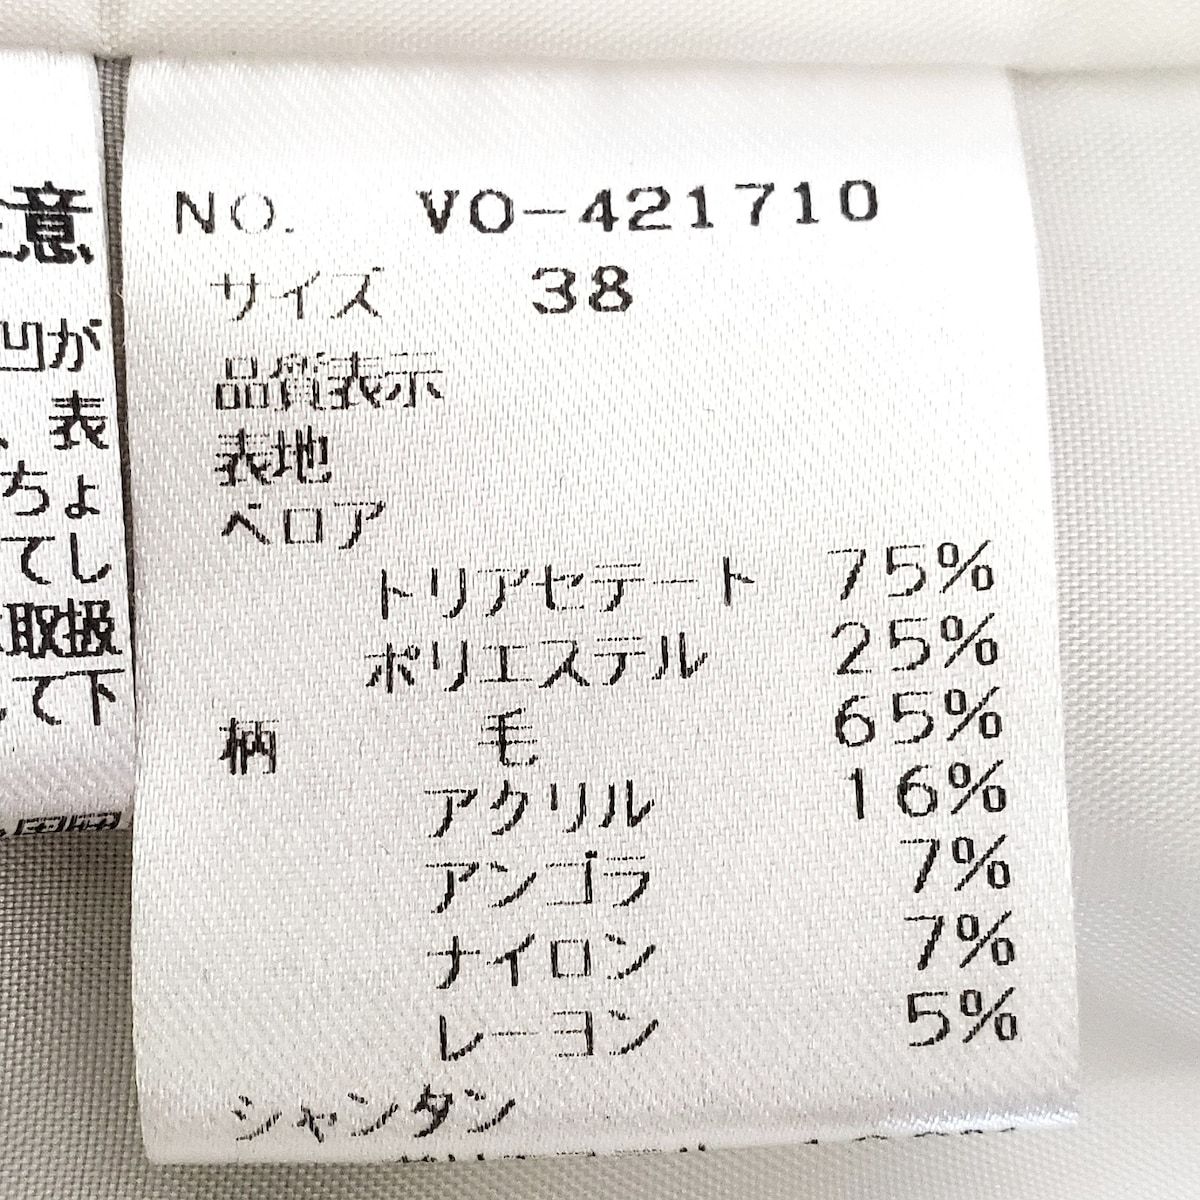 意
凹が
、表
ちょ
てし
取扱
て下
NO. VO-421710
サイズ 38
品質表示
表地
ベロア
トリアセテート 75%
ポリエステル 25%
柄 毛 65%
アクリル 16%
アンゴラ 7%
ナイロン 7%
レーヨン 5%
シャンタン